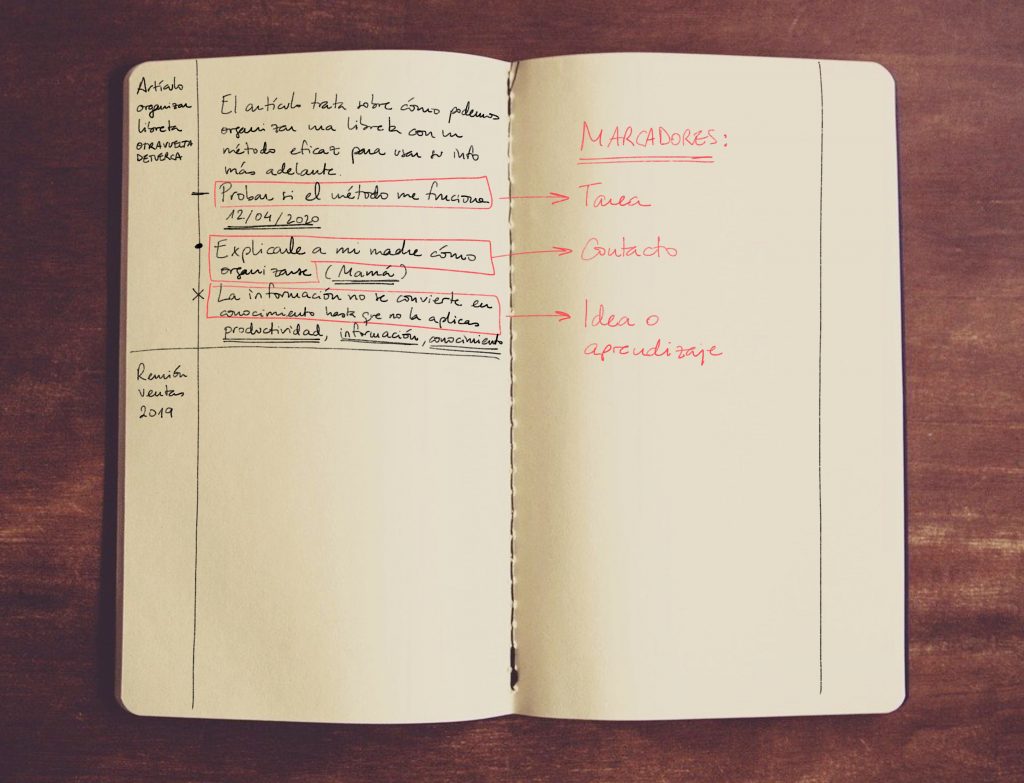 Artículo
organizar
libreta
OTRA VUELTA
DE TUERCA
El artículo trata sobre cómo podemos
organizar una libreta con un
método eficaz para usar su info
más adelante.
— Probar si el método me funciona
12/04/2020
• Explicarle a mi madre cómo
organizarse (Mamá)
× La información no se convierte en
conocimiento hasta que no la aplicas
productividad, información, conocimiento
Reunión
ventas
2019
MARCADORES:
Tarea
Contacto
Idea o
aprendizaje